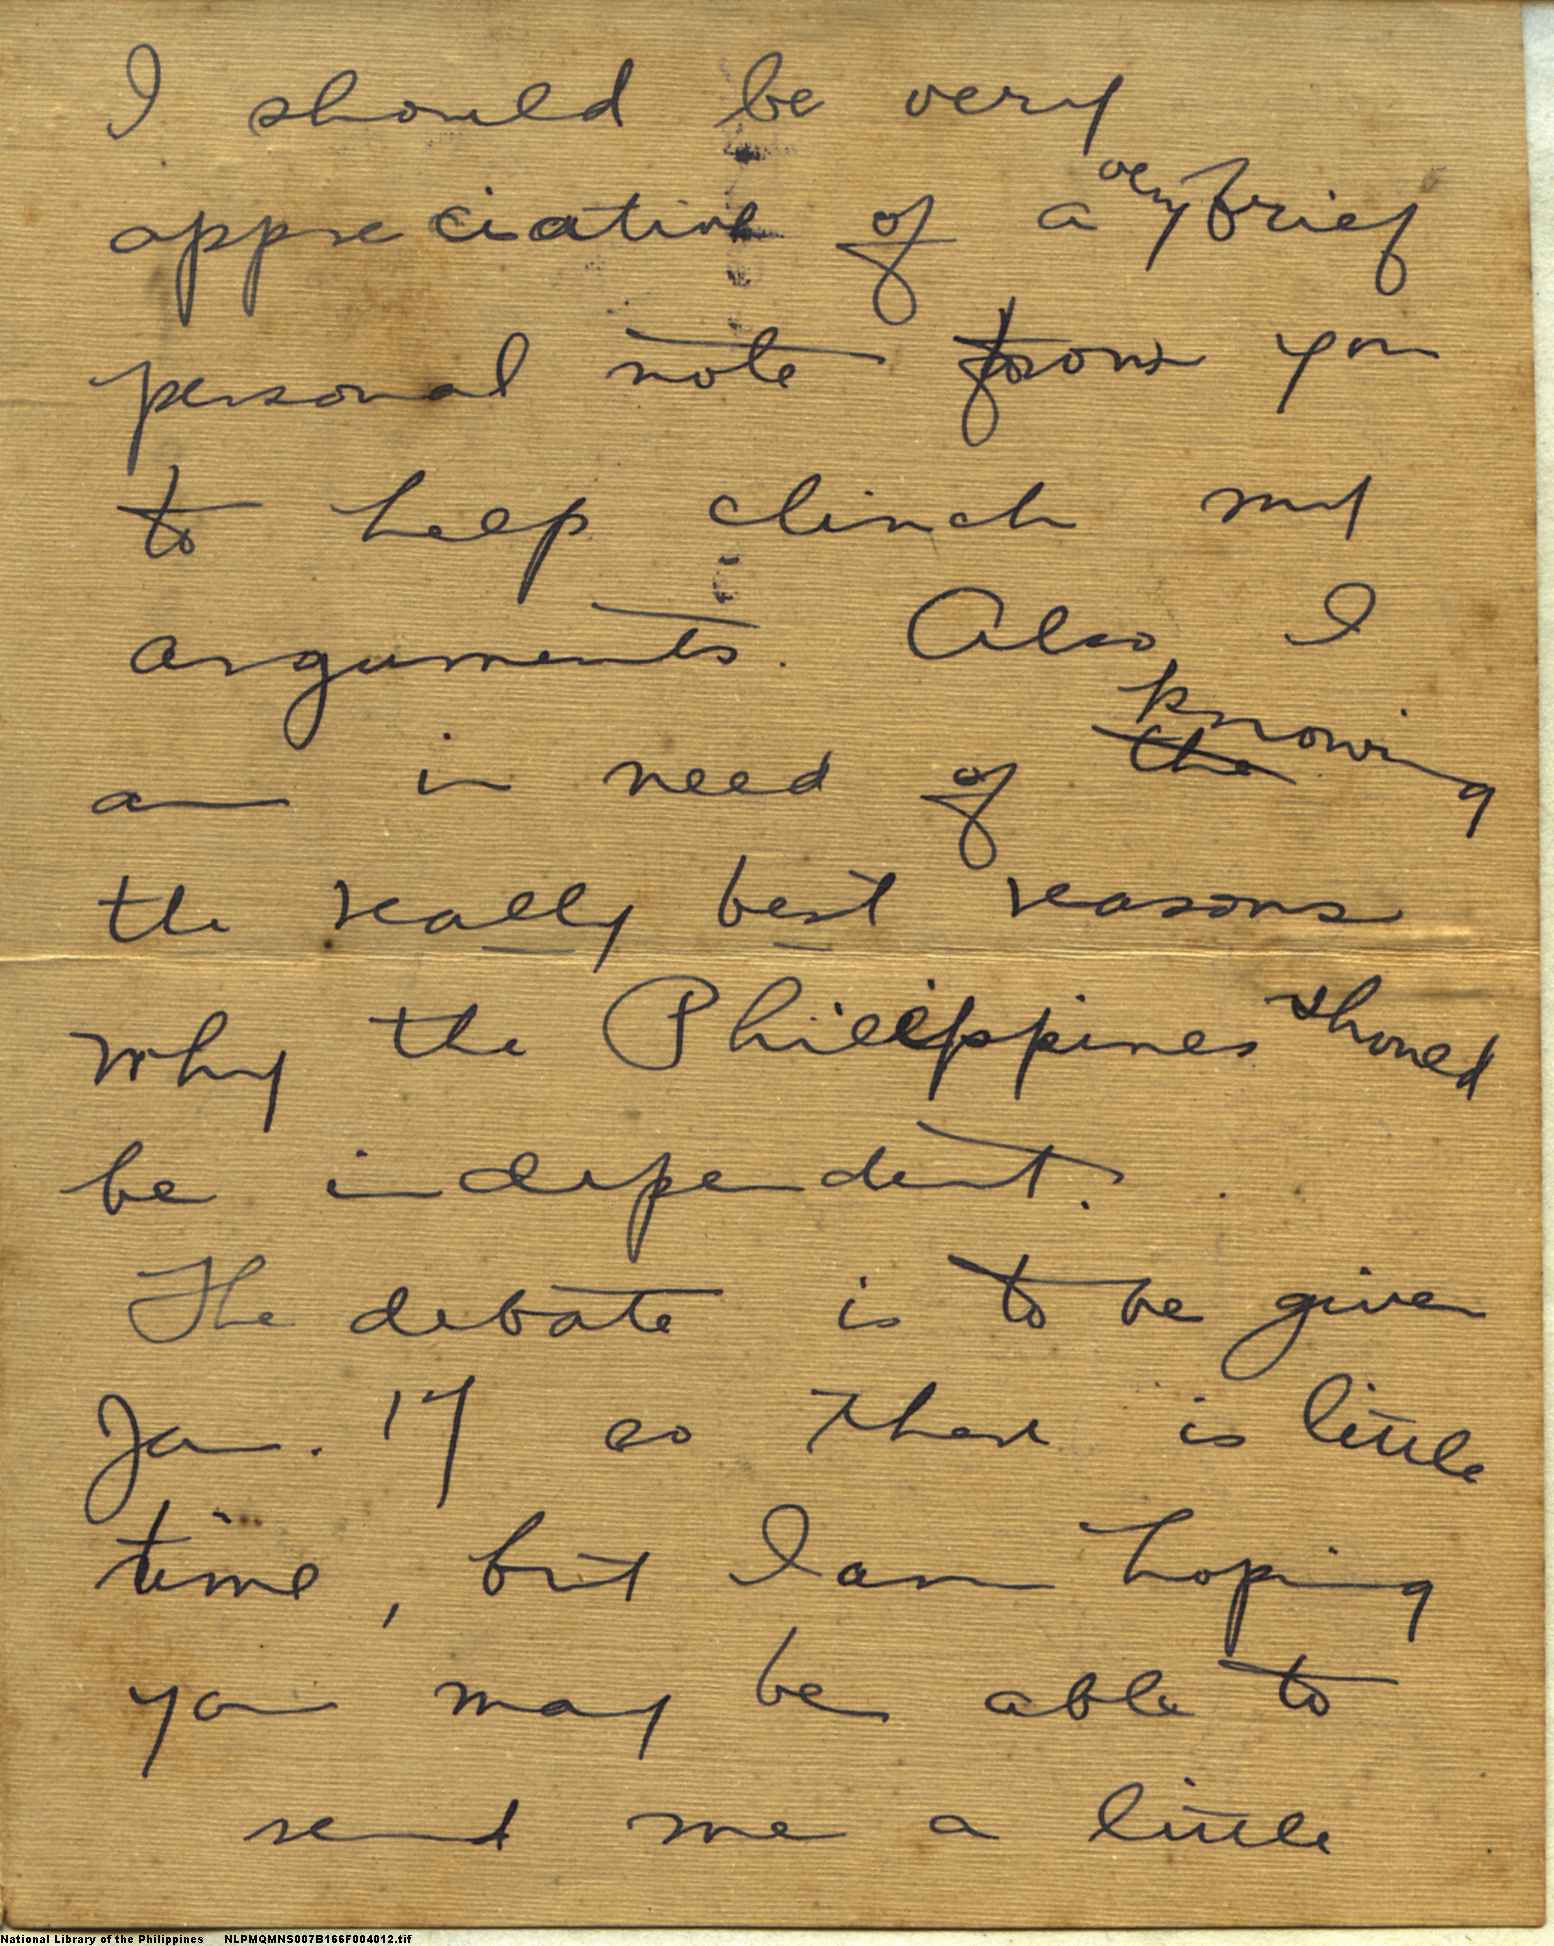 I should be very
appreciative of a very brief
personal note from you
to help clinch my
arguments. Also, I
am in need of the knowing
the really best reasons
why the Philippines should
be independent.
The debate is to be given
Jan. 17 so there is little
time, but I am hoping
you may be able to
send me a little
National Library of the Philippines NLPMQMNS007B166F004012.tif